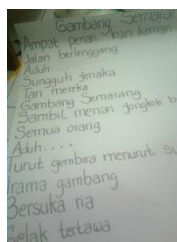 Gambang Semarang
Ampat penari kian kemari
Jalan berlenggang
Aduh....
Sungguh jenaka
Tari mereka
Gambang Semarang
Sambil menari jongkok b
Semua orang
Aduh....
Turut gembira menurut su
Irama gambang
Bersuka ria
Gelak tertawa